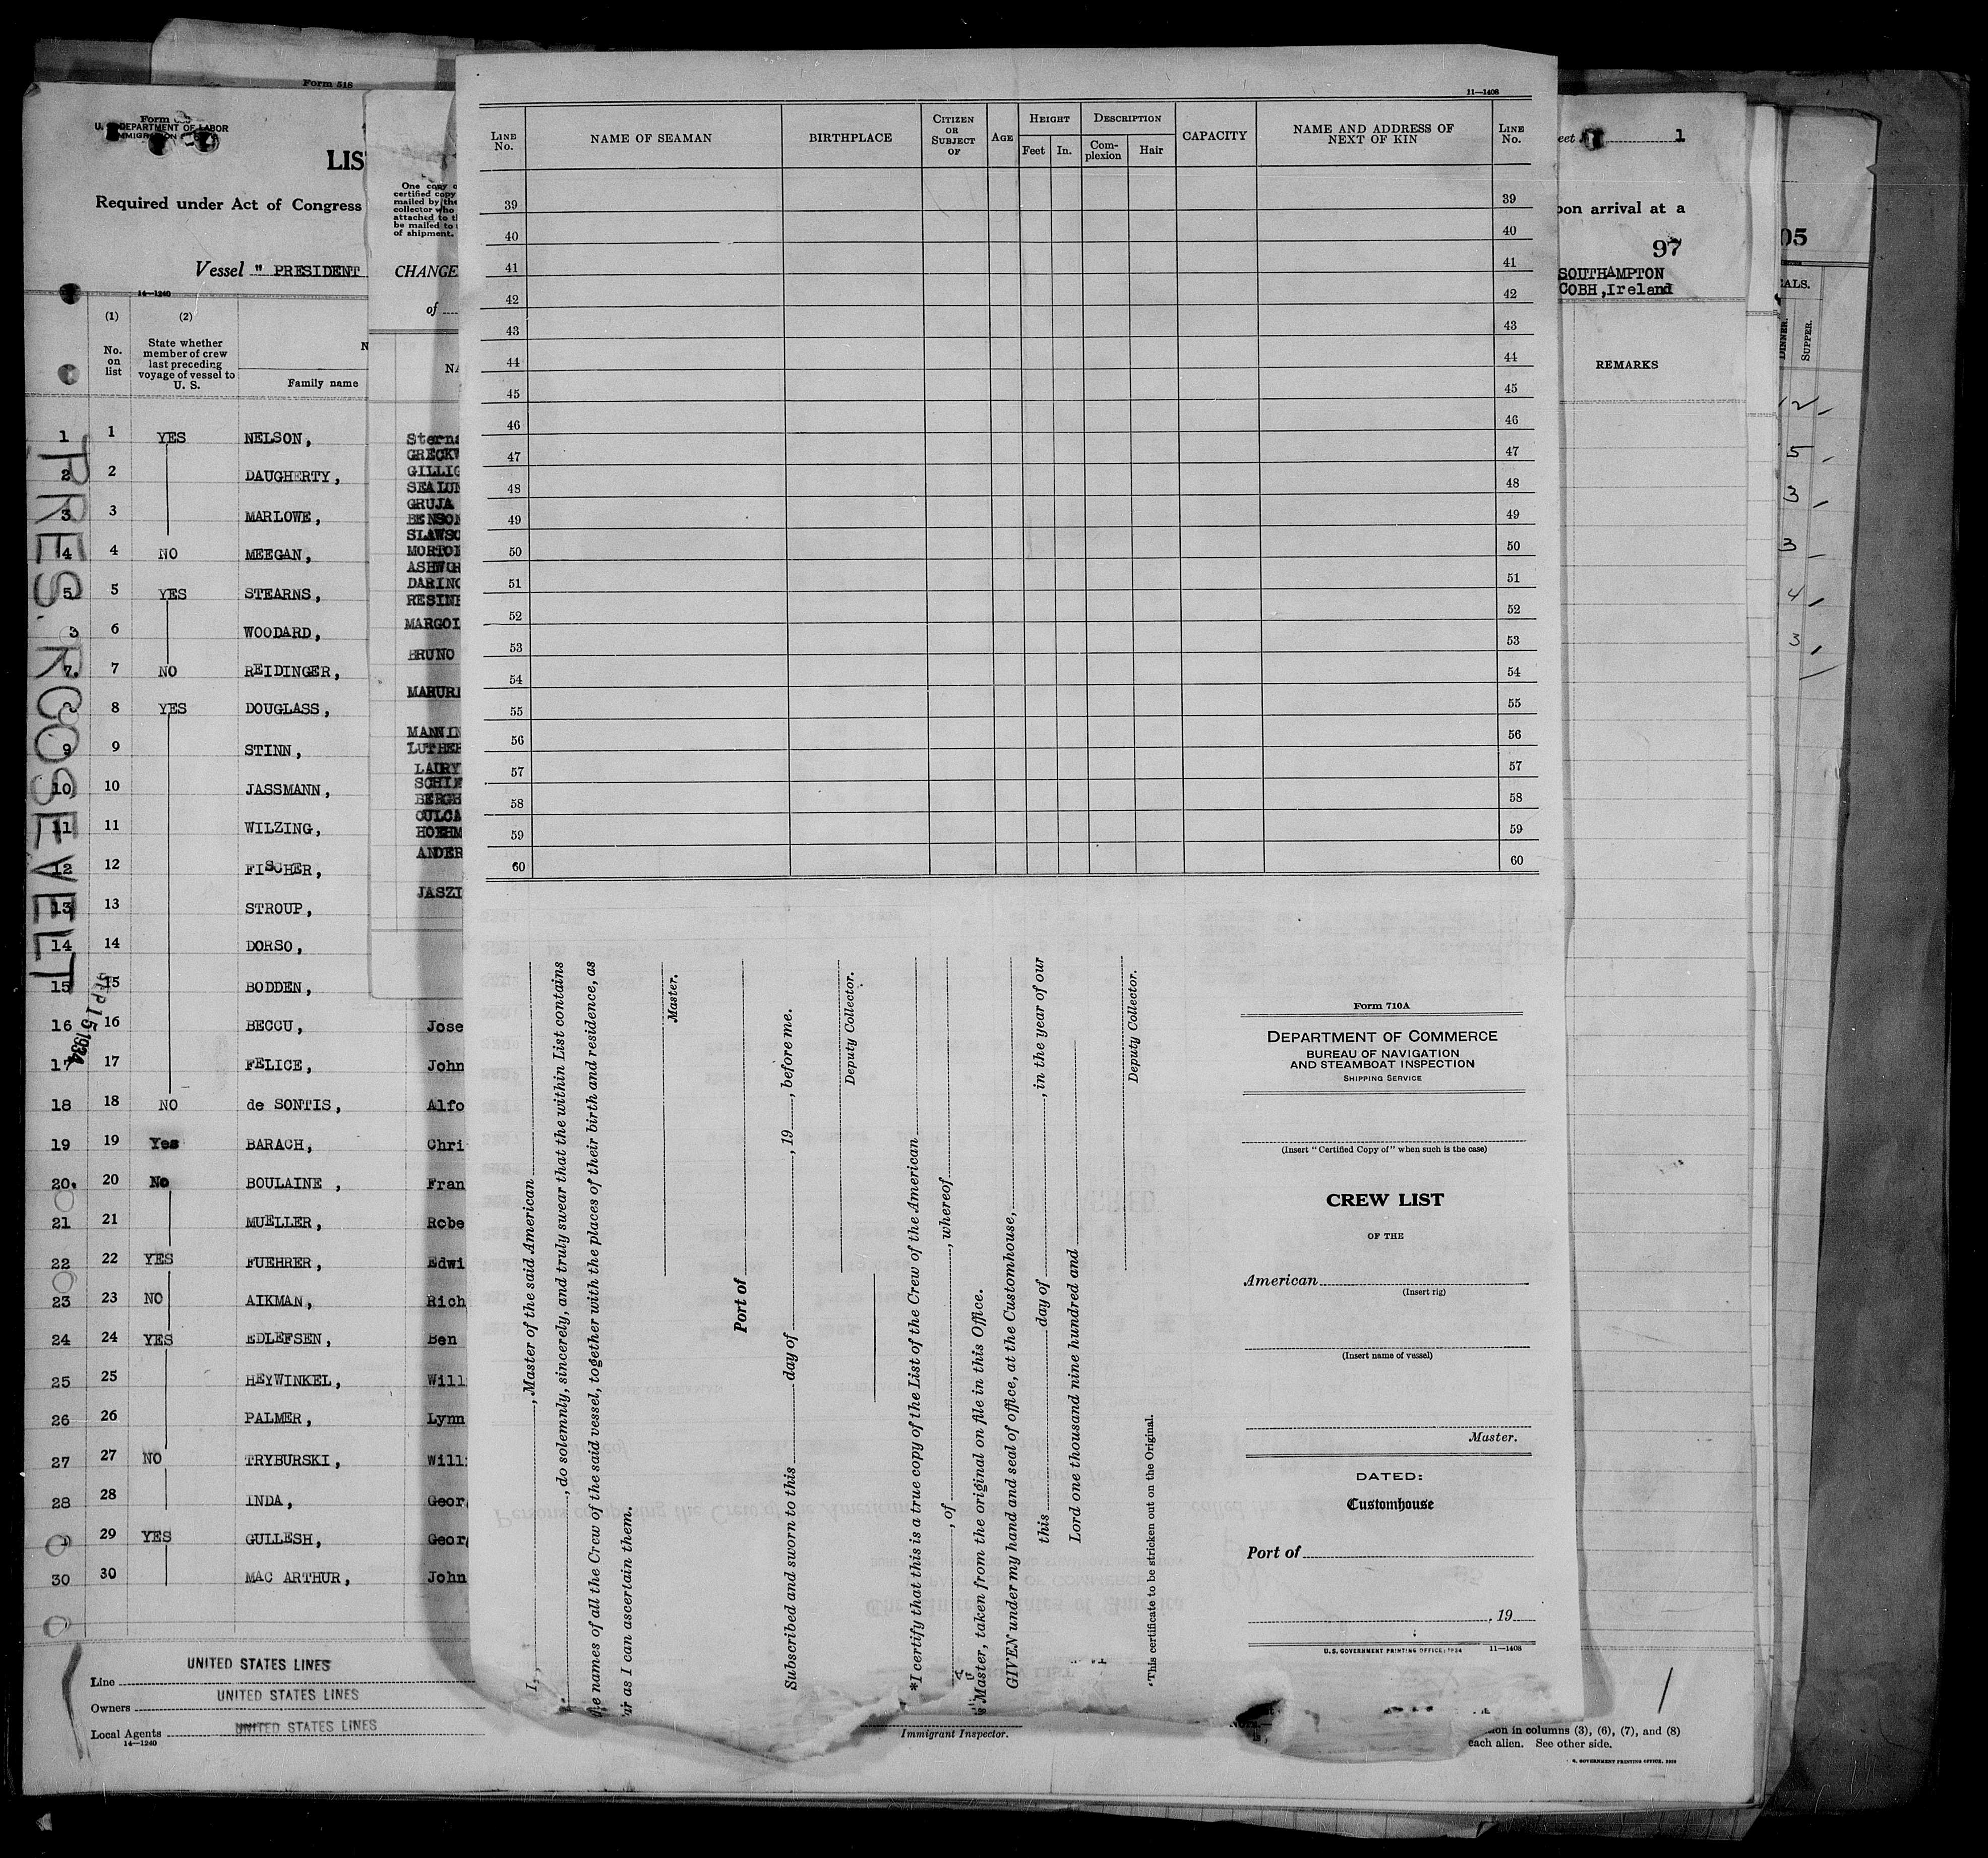 Form 518
Form
U. S. DEPARTMENT OF LABOR
LIS
Required under Act of Congress
Vessel " PRESIDENT
14—1240
(1)
(2)
No. on list
State whether member of crew last preceding voyage of vessel to U. S.
N
Family name
1 1 YES NELSON,
2 2 DAUGHERTY,
3 3 MARLOWE,
4 4 NO MEEGAN,
5 5 YES STEARNS,
6 WOODARD,
7 7 NO REIDINGER,
8 YES DOUGLASS,
9 9 STINN,
10 10 JASSMANN,
11 11 WILZING,
12 12 FISCHER,
13 13 STROUP,
14 14 DORSO,
15 15 BODDEN,
16 16 BECCU, Jose
17 17 FELICE, John
18 18 NO de SONTIS, Alfo
19 19 Yes BARACH, Chri
20 20 No BOULAINE , Fran
21 21 MUELLER, Robe
22 22 YES FUEHRER, Edwi
23 23 NO AIKMAN, Rich
24 24 YES EDLEFSEN, Ben
25 25 HEYWINKEL, Will
26 26 PALMER, Lynn
27 27 NO TRYBURSKI, Will
28 28 INDA, Geor
29 YES GULLESH, Geor
30 30 MAC ARTHUR, John
PRES. ROOSEVELT
SEP 15 1934
Line UNITED STATES LINES
Owners UNITED STATES LINES
Local Agents UNITED STATES LINES
14—1240
One copy o
certified copy
mailed by the
collector who
attached to t
be mailed to
of shipment.
CHANGE
of
NA
Sterns
GRECKW
GILLIG
SEALUN
GRUJA
BENSON
SLAWSO
MORTON
ASHWOR
DARING
RESINE
MARGOL
BRUNO
MARURI
MANNIN
LUTHER
LAURY
SCHIF
BERGH
CULCA
HOEHM
ANDER
JASZI
11—1408
LINE No.
NAME OF SEAMAN
BIRTHPLACE
CITIZEN OR SUBJECT OF
AGE
HEIGHT
Feet
In.
DESCRIPTION
Complexion
Hair
CAPACITY
NAME AND ADDRESS OF NEXT OF KIN
LINE No.
39 39
40 40
41 41
42 42
43 43
44 44
45 45
46 46
47 47
48 48
49 49
50 50
51 51
52 52
53 53
54 54
55 55
56 56
57 57
58 58
59 59
60 60
I, , Master of the said American
, do solemnly, sincerely, and truly swear that the within List contains
the names of all the Crew of the said vessel, together with the places of their birth and residence, as
far as I can ascertain them.
Master.
Port of
Subscribed and sworn to this day of , 19 , before me.
Deputy Collector.
*I certify that this is a true copy of the List of the Crew of the American
, of , whereof
is Master, taken from the original on file in this Office.
GIVEN under my hand and seal of office, at the Customhouse,
this day of , in the year of our
Lord one thousand nine hundred and
Deputy Collector.
*This certificate to be stricken out on the Original.
Form 710A
DEPARTMENT OF COMMERCE
BUREAU OF NAVIGATION
AND STEAMBOAT INSPECTION
SHIPPING SERVICE
(Insert "Certified Copy of" when such is the case)
CREW LIST
OF THE
American
(Insert rig)
(Insert name of vessel)
Master.
DATED:
Customhouse
Port of
, 19
U. S. GOVERNMENT PRINTING OFFICE: 1934 11—1408
Immigrant Inspector.
eet 1
pon arrival at a
97
SOUTHAMPTON
COBH,Ireland
REMARKS
ion in columns (3), (6), (7), and (8)
each alien. See other side.
05
ALS.
DINNER.
SUPPER.
12
5
3
3
4
3